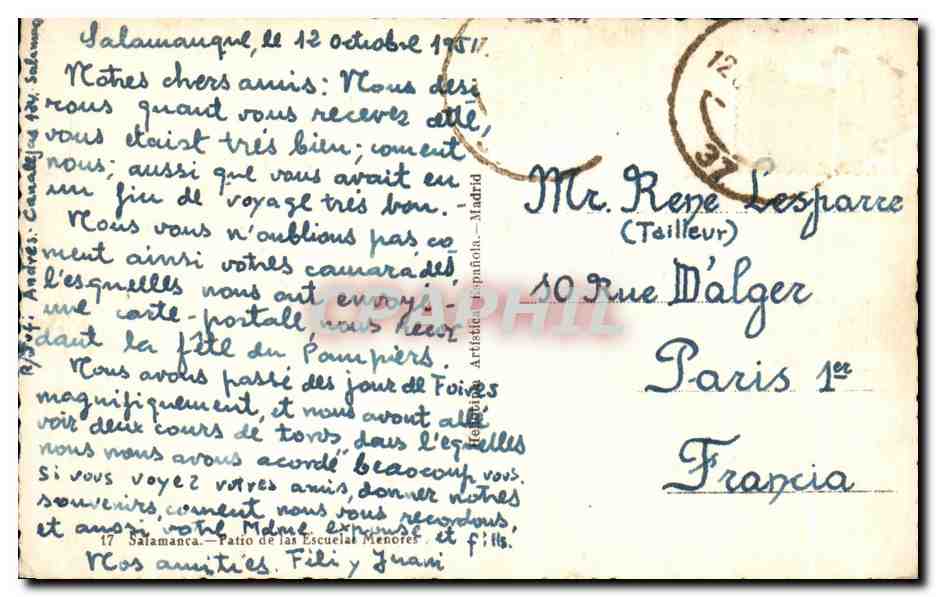 Salamanque, le 12 Octobre 1951
Notres chers amis: Nous desi-
rous quand vous recevez cette,
vous etaist trés bien; coment
nous; aussi que vous avait eu
un fin de voyage trés bon.-
Nous vous n'oublions pas co
ment ainsi votres camarades,
l'esquelles nous ont envoyé-
une carte-portale, nous recor
dant la fête du Pompiers.
Nous avons passé des jour de Foires
magnifiquement, et nous avont allé
voir deux cours de toros, dans l'equelles
nous nous avons acordé beaucoup vous.
Si vous voyez votres amis, donner notres
souvenirs, coment nous vous recordons,
et aussi votre Mdme. expouse et fills.
17 Salamanca.—Patio de las Escuelas Menores
Nos amitiés. Fili y Juani
Andrés: Canalejas 134, Salamanca
Heliotipia Artística Española.—Madrid
CPAPHIL
12
37
Mr. Rene Lesparre
(Tailleur)
10 Rue D'alger
Paris 1er
Francia